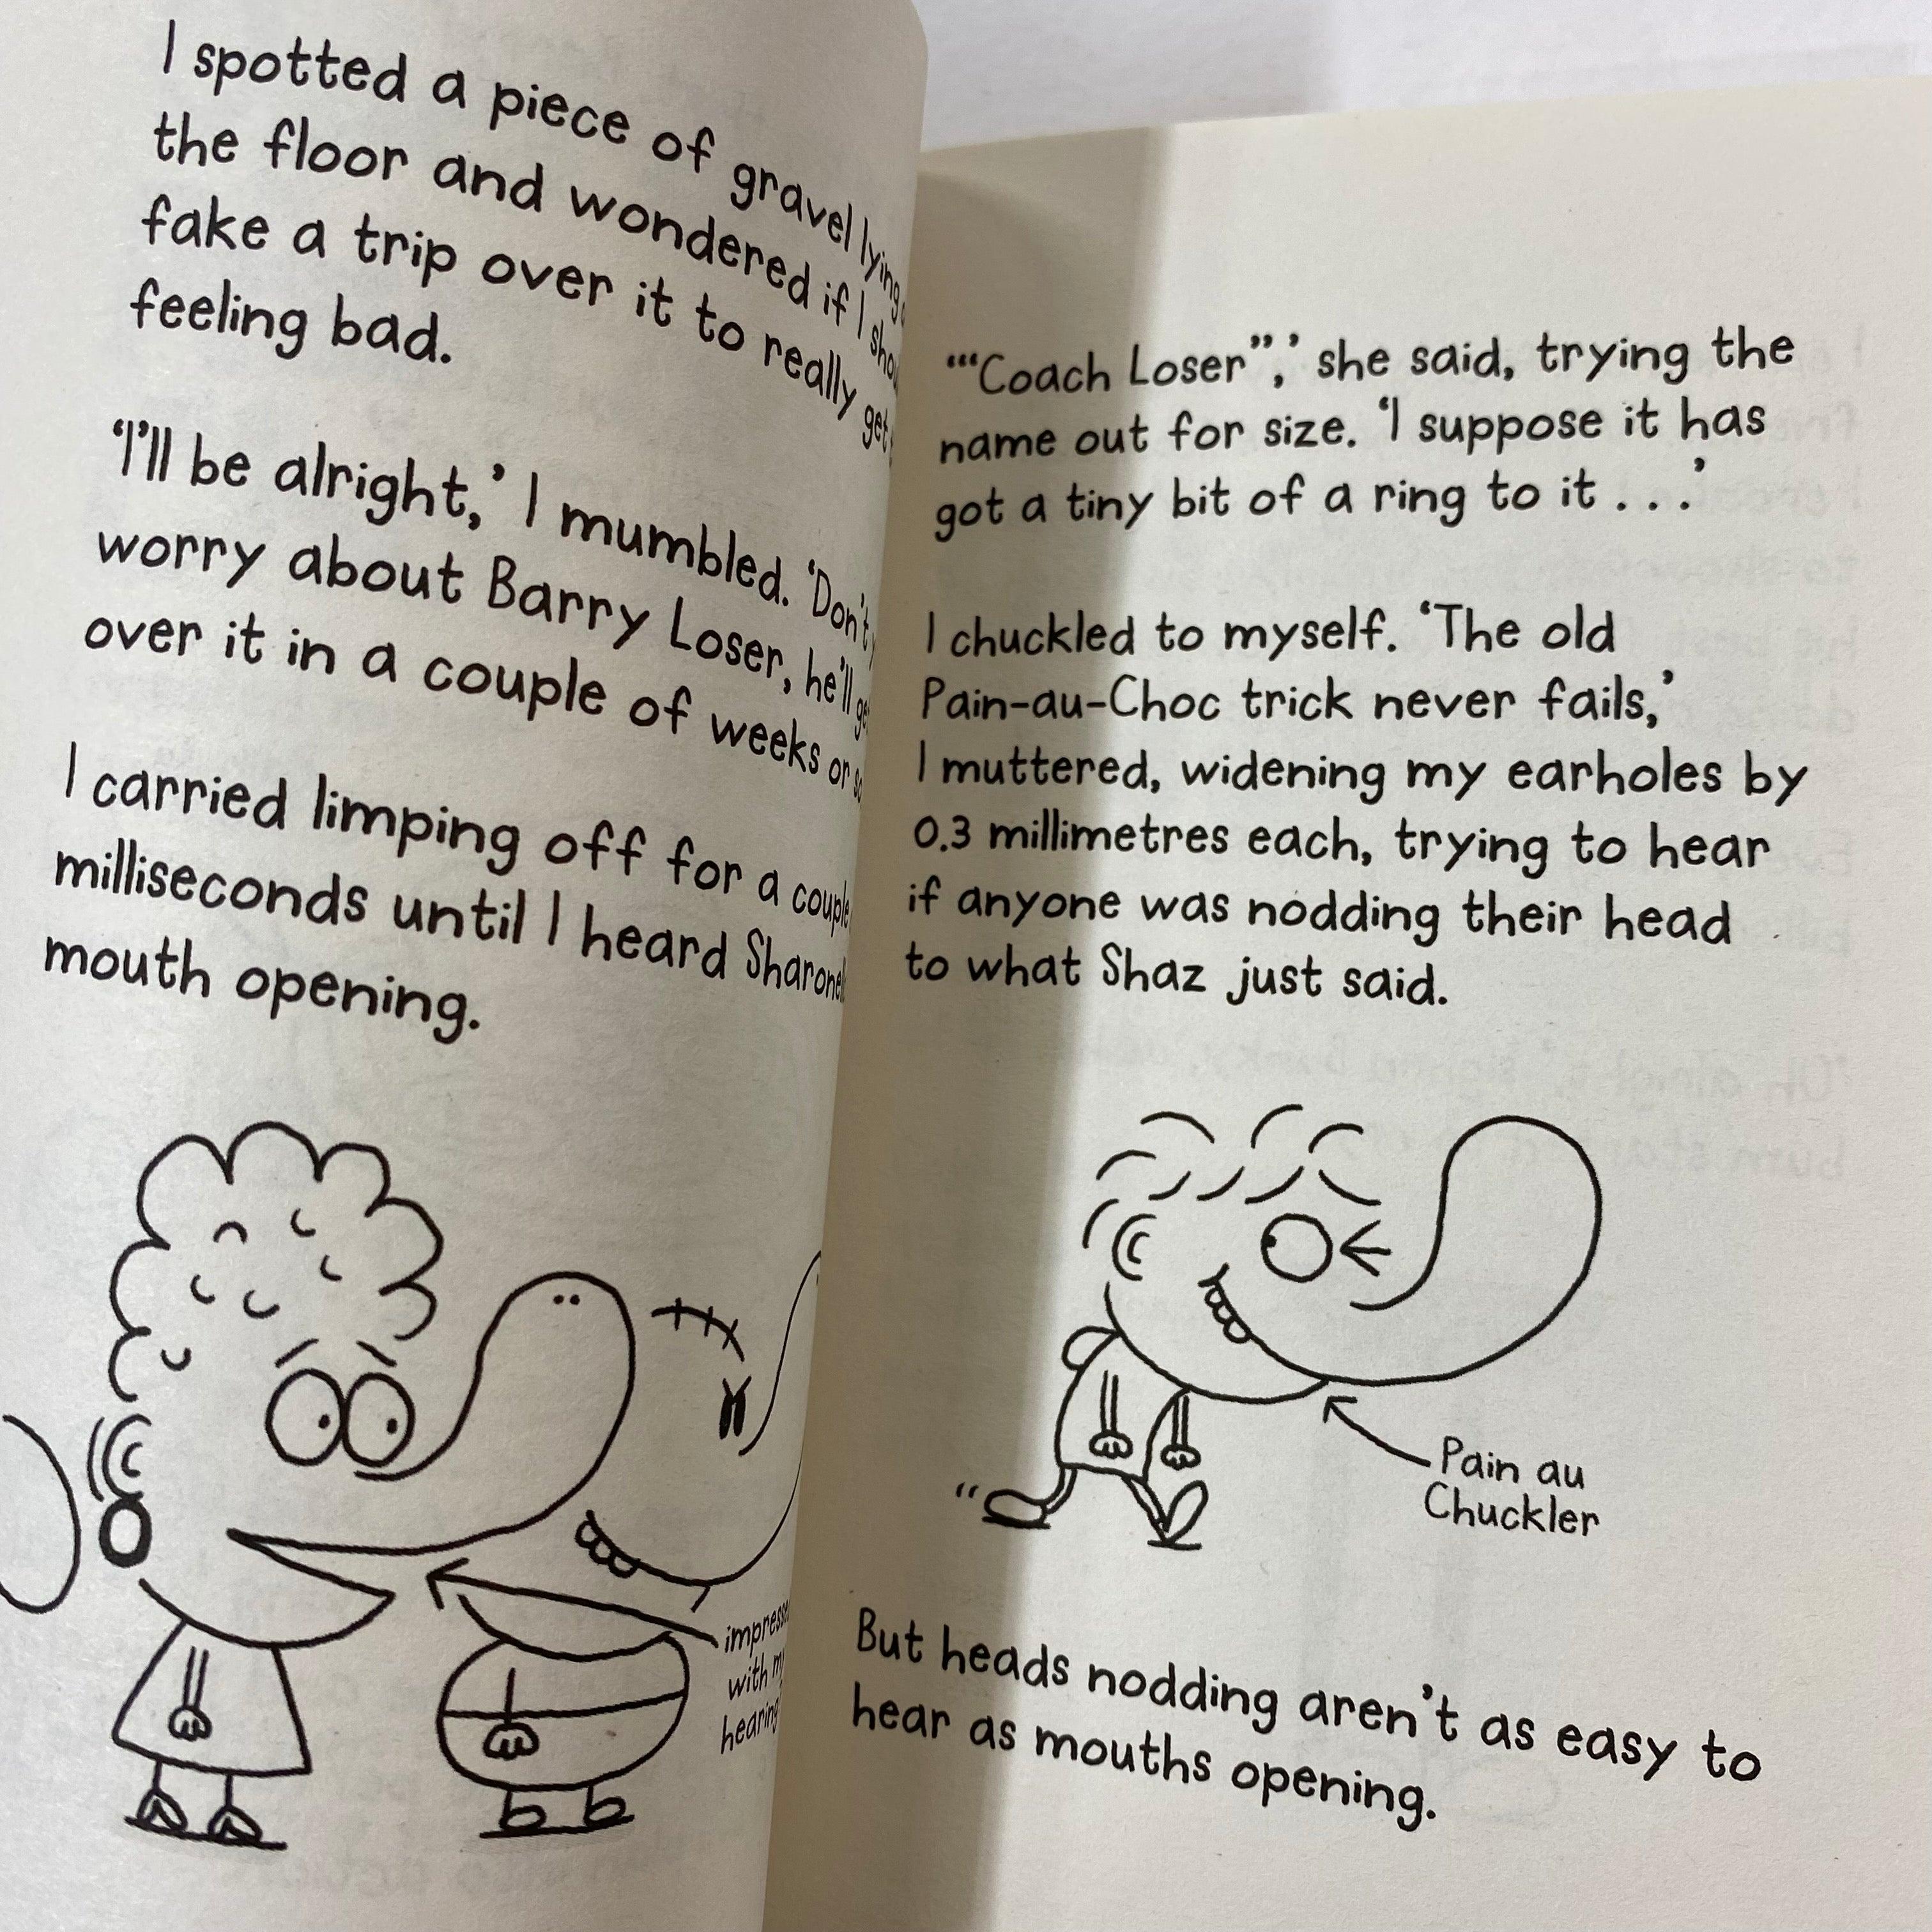 I spotted a piece of gravel lying
the floor and wondered if I
fake a trip over it to really get
feeling bad.
‘I’ll be alright,’ I mumbled. ‘Don’t
worry about Barry Loser, he’ll
over it in a couple of weeks or
I carried limping off for a couple
milliseconds until I heard
mouth opening.
with
hearing
“‘Coach Loser”,’ she said, trying the
name out for size. ‘I suppose it has
got a tiny bit of a ring to it . . .’
I chuckled to myself. ‘The old
Pain-au-Choc trick never fails,’
I muttered, widening my earholes by
0.3 millimetres each, trying to hear
if anyone was nodding their head
to what Shaz just said.
Pain au
Chuckler
But heads nodding aren’t as easy to
hear as mouths opening.